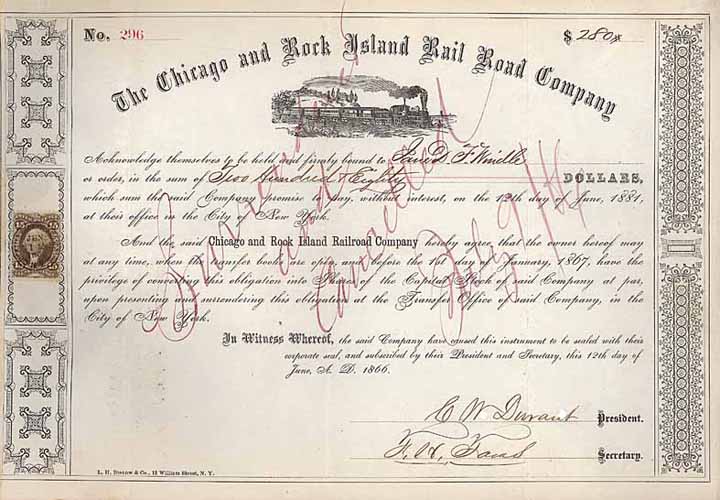 No. 296 $ 280
The Chicago and Rock Island Rail Road Company
Acknowledge themselves to be held and firmly bound to F. Windle
or order, in the sum of Two Hundred & Eighty DOLLARS,
which sum the said Company promise to pay, without interest, on the 12th day of June, 1881,
at their office in the City of New York.
And the said Chicago and Rock Island Railroad Company hereby agree, that the owner hereof may
at any time, when the transfer books are open, and before the 1st day of January, 1867, have the
privilege of converting this obligation into Shares of the Capital Stock of said Company at par,
upon presenting and surrendering this obligation at the Transfer Office of said Company, in the
City of New York.
In Witness Whereof, the said Company have caused this instrument to be sealed with their
corporate seal, and subscribed by their President and Secretary, this 12th day of
June, A. D. 1866.
C W Durant President.
F. H. Secretary.
and
Cancelled
July 9